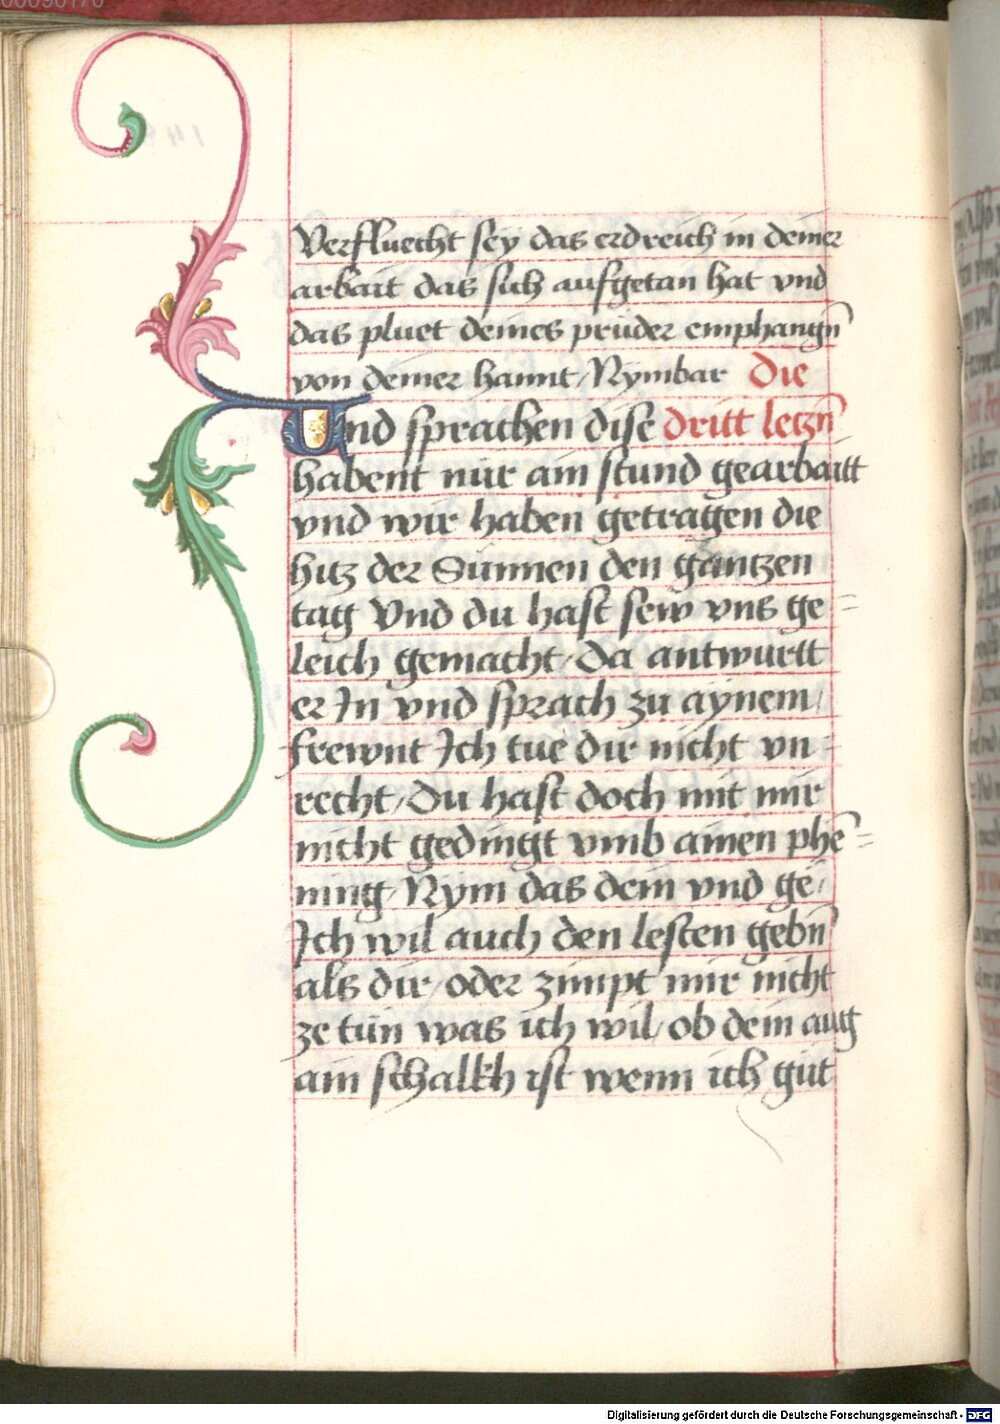 Verfluecht sey das erdreich in deiner
arbait das sich aufgetan hat vnd
das pluet deines prüder emphangn̄
von deiner hannt / Nym bar Die
Und sprachen dise dritt letzn̄
habent nür ain stund gearbaitt
vnd wir haben getragen die
hitz der Sünnen den gantzen
tag Vnd du hast sew vns ge=
leich gemacht / Da antwurtt
er In vnd sprach zu aynem /
frewnt Ich tue dir nicht vn=
recht / Du hast doch mit mir
nicht gedingt vmb ainen phe=
ning / Nym das dein vnd ge /
Ich wil auch den lesten gebn̄
als dir / oder zimpt mir nicht
ze tün was ich wil / ob dein aug
ain schalkh ist wenn ich güt
Digitalisierung gefördert durch die Deutsche Forschungsgemeinschaft - DFG